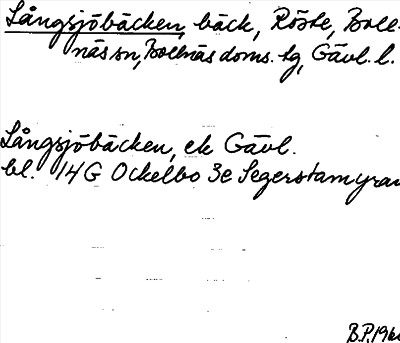 Långsjöbäcken, bäck, Röste, Boll-
näs sn, Bollnäs doms. tg, Gävl. l.
Långsjöbäcken, ek Gävl.
bl. 14G Ockelbo 3e Segerstamyran
B.P. 196